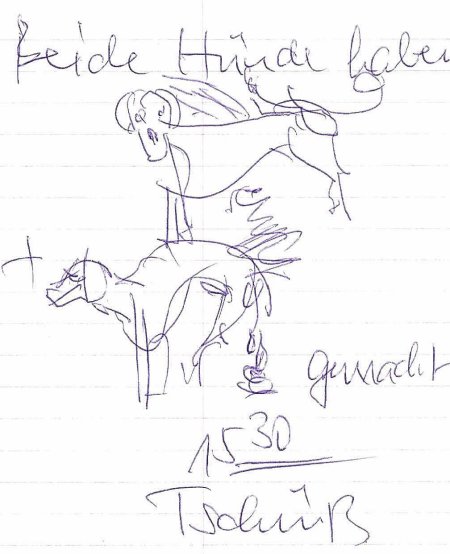 Beide Hunde haben
+
gemacht
15³⁰
Tschüß